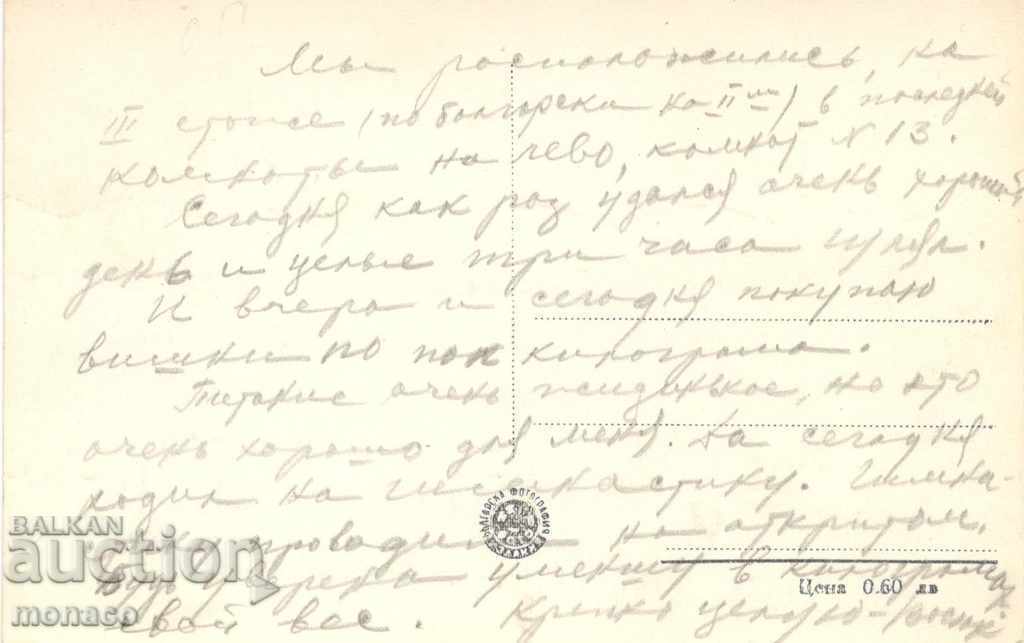 Мы расположились, на
III этаже (по болгарски на II ом) в последней
комнаты на лево, комнат N 13.
Сегодня как раз удался очень хороший
день и целые три часа гулял.
И вчера и сегодня покупаю
вишни по пол килограма.
Питание очень жиденькое, но это
очень хорошо для меня. Да сегодня
ходил на гимнастику. Гимна-
проводим на открытом.
уменшу в килограмах
свой вес. Крепко целую
БЪЛГАРСКА ФОТОГРАФИЯ
Цена 0.60 лв
BALKAN
auction
monaco